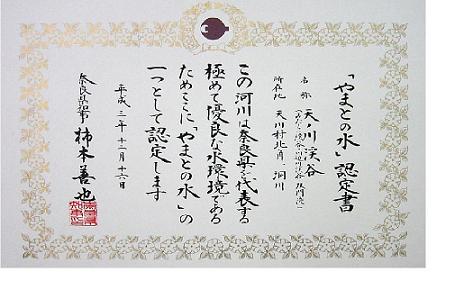 「やまとの水」認定書
名称 天ノ川渓谷
所在地 天川村北角~洞川
この河川は奈良県を代表する
極めて優良な水環境である
ためここに「やまとの水」の
一つとして認定します
平成三年十二月十六日
奈良県知事 柿本善也